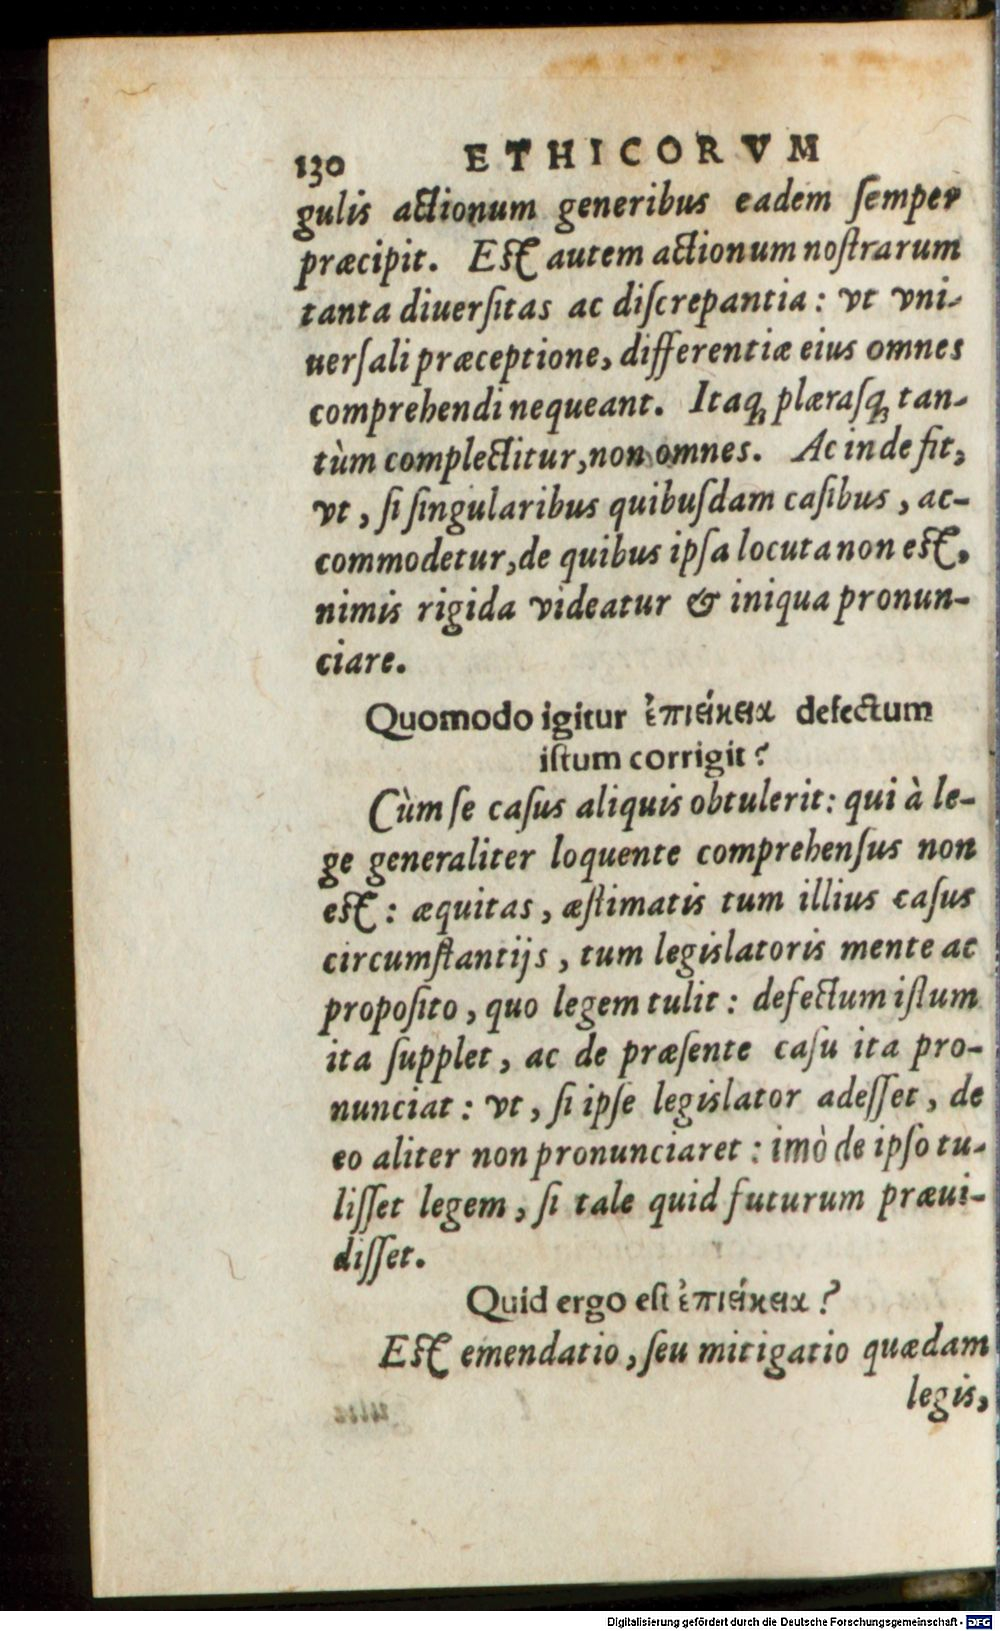 130 ETHICORVM
gulis actionum generibus eadem ſemper
præcipit. Eſt autem actionum noſtrarum
tanta diuerſitas ac diſcrepantia: vt vni-
uerſali præceptione, differentiæ eius omnes
comprehendi nequeant. Itaq; plæraſq; tan-
tùm complectitur, non omnes. Ac inde fit,
vt, ſi ſingularibus quibuſdam caſibus, ac-
commodetur, de quibus ipſa locuta non eſt,
nimis rigida videatur & iniqua pronun-
ciare.
Quomodo igitur ἐπιείκεια defectum
iſtum corrigit?
Cùm ſe caſus aliquis obtulerit: qui à le-
ge generaliter loquente comprehenſus non
eſt: æquitas, æſtimatis tum illius caſus
circumſtantijs, tum legislatoris mente ac
propoſito, quo legem tulit: defectum iſtum
ita ſupplet, ac de præſente caſu ita pro-
nunciat: vt, ſi ipſe legislator adeſſet, de
eo aliter non pronunciaret: imò de ipſo tu-
liſſet legem, ſi tale quid futurum præui-
diſſet.
Quid ergo eſt ἐπιείκεια?
Eſt emendatio, ſeu mitigatio quædam
legis,
Digitalisierung gefördert durch die Deutsche Forschungsgemeinschaft - DFG